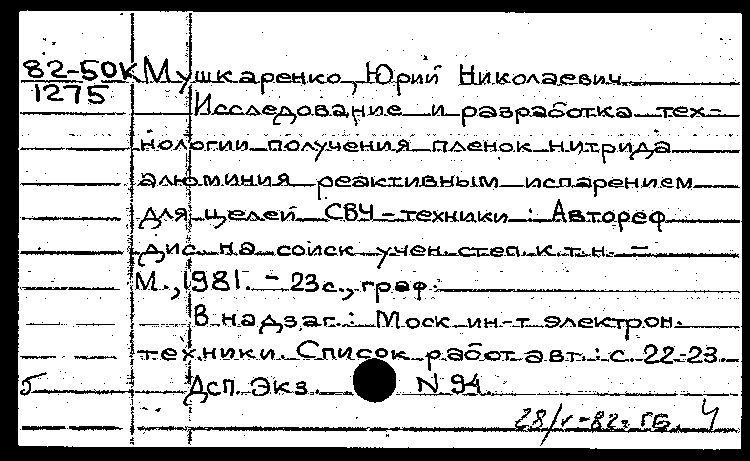 82-50к Мушкаренко, Юрий Николаевич
1275
Исследование и разработка тех-
нологии получения пленок нитрида
алюминия реактивным испарением
для целей СВЧ-техники : Автореф
дис. на соиск учен. степ. к.т.н. –
М., 1981. – 23 с., граф.
В надзаг.: Моск ин-т электрон.
техники. Список работ авт.: с. 22-23.
б Дсп. Экз. N 94.
28/V-82г. ГБ. Ч